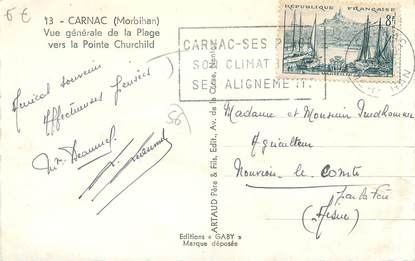 6€
13 - CARNAC (Morbihan)
Vue générale de la Plage
vers la Pointe Churchild
CARNAC-SES P
SON CLIMAT
SES ALIGNEMENT.
REPUBLIQUE FRANÇAISE
8F
Amical souvenir
Affectueuses pensées
56
ARTAUD Père & Fils, Edit., Av. de la Close, Nantes
Madame et Monsieur Prudhomme
Agriculteur
Nouvion-le-Comte
par La Fère
(Aisne)
Editions « GABY »
Marque déposée